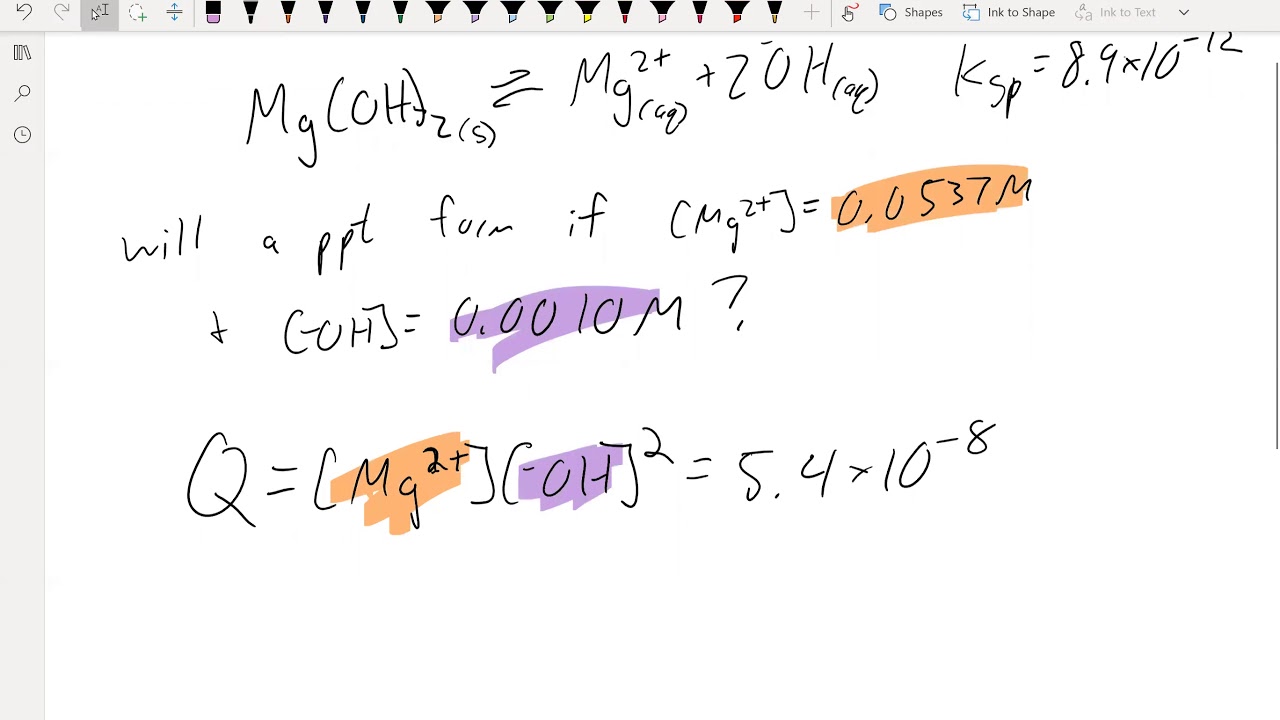 Shapes Ink to Shape Ink to Text
Mg(OH)₂(s) ⇌ Mg²⁺(aq) + 2⁻OH(aq) Ksp = 8.9×10⁻¹²
will a ppt form if [Mg²⁺] = 0.0537M
+ [⁻OH] = 0.0010M ?
Q = [Mg²⁺][⁻OH]² = 5.4×10⁻⁸